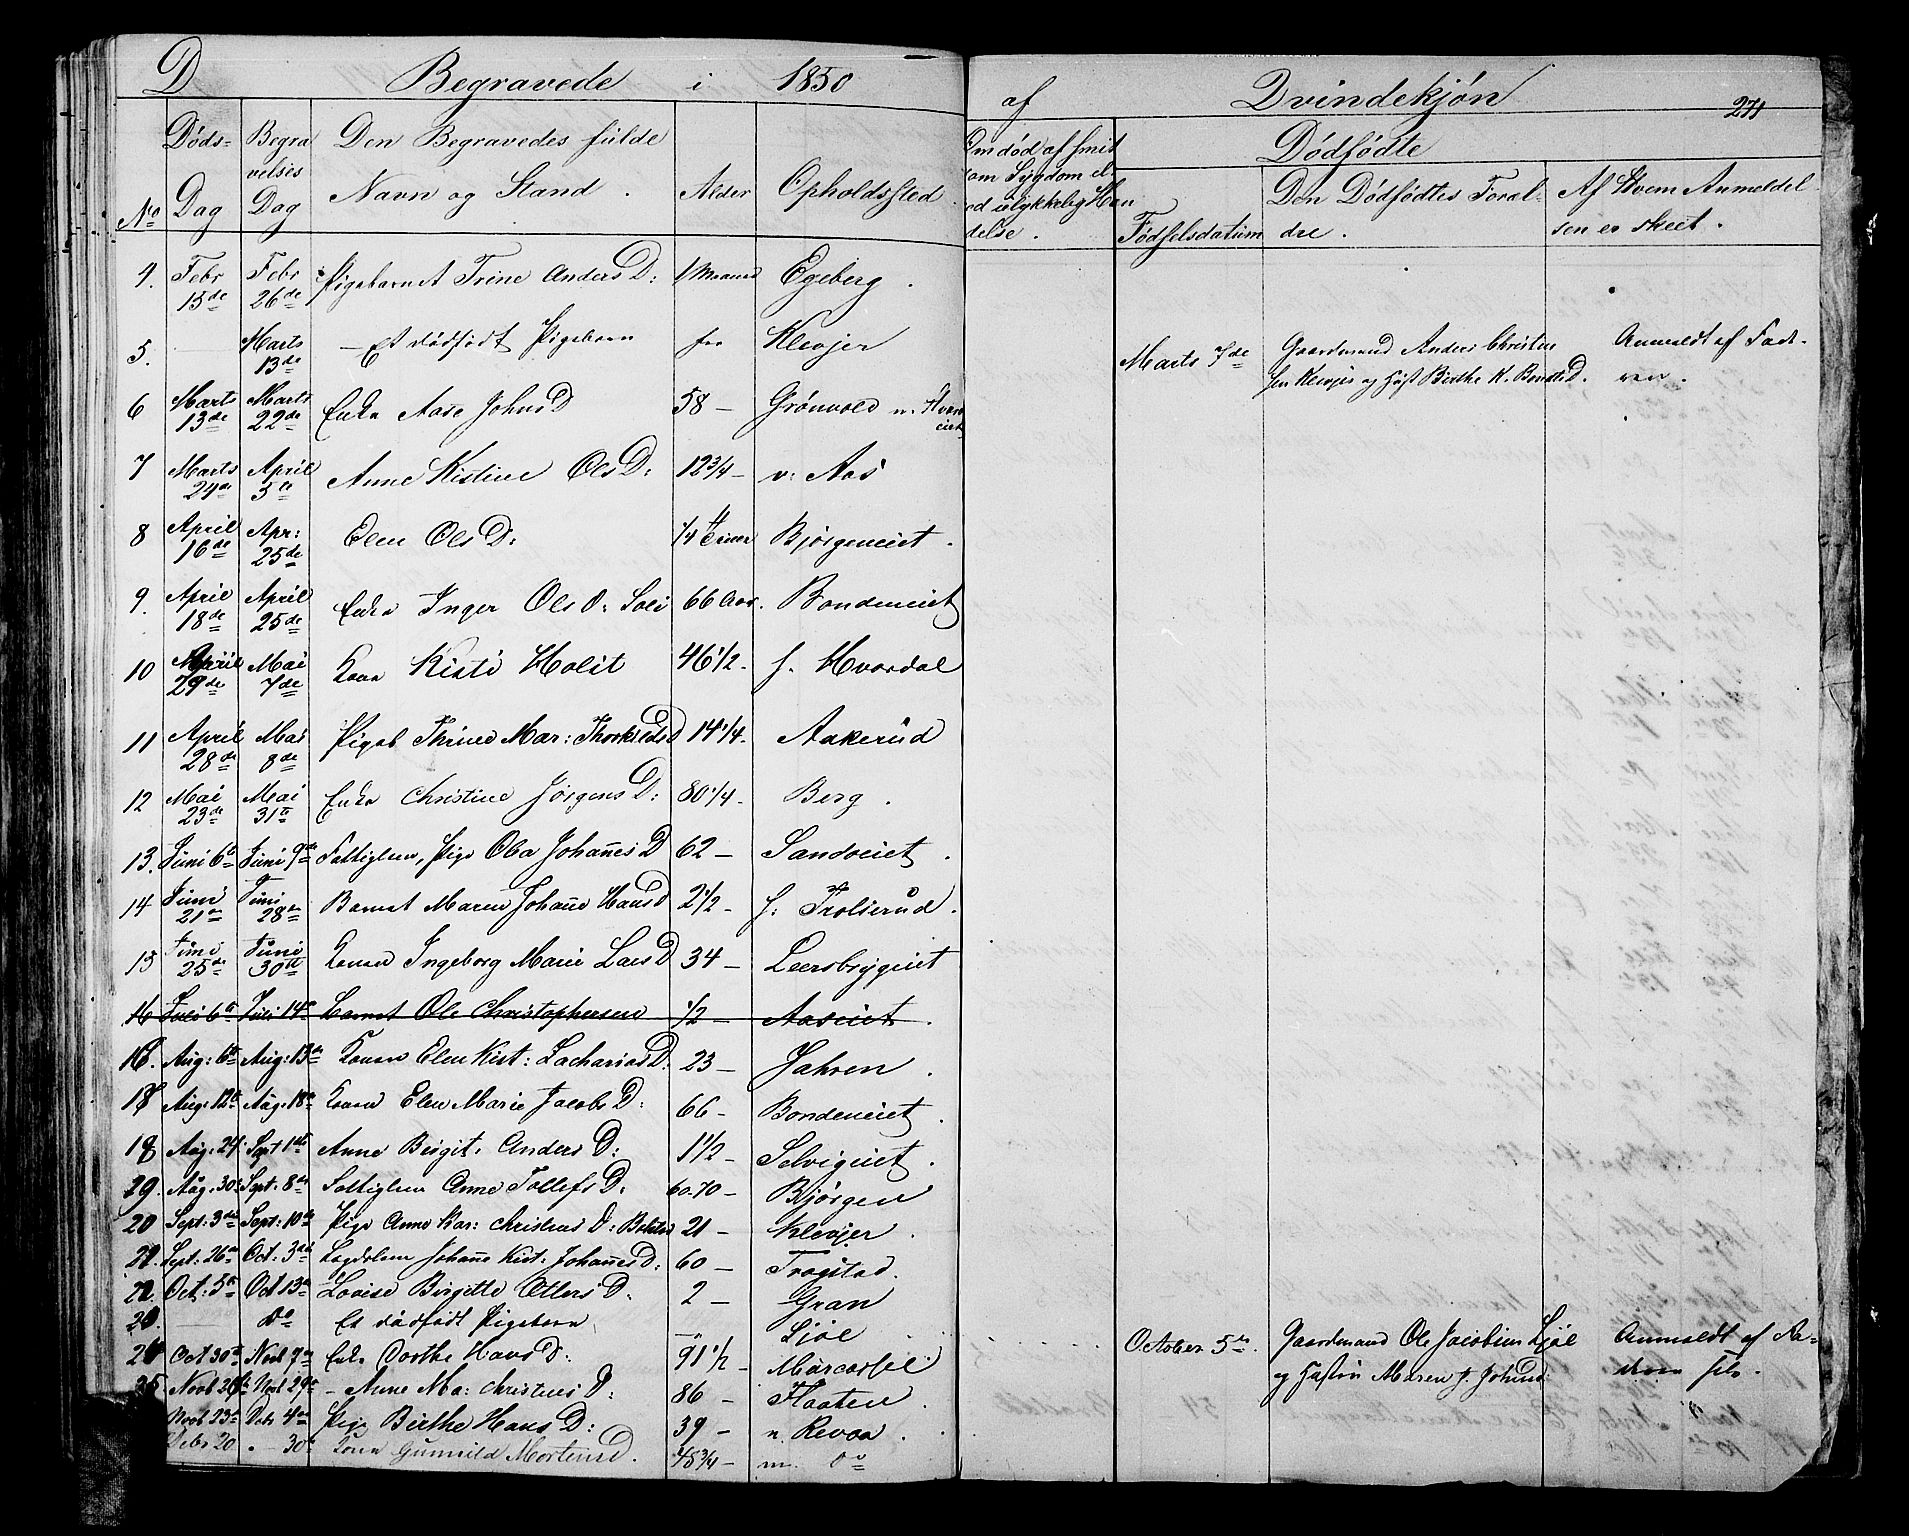 D Begravede i 1850 af Qvindekjøn 271
No Døds-Dag Begravelses Dag Den Begravedes fulde Navn og Stand. Alder Opholdssted Om død af smitsom Sygdom el. ved ulykkelig Hændelse. Dødfødte
Fødselsdatum Den Dødfødtes Forældre. Af Hvem Anmeldelsen er skeet.
Febr 15de Febr 26de Pigebarnet Trine Anders D: 1 Maaned Egeberg.
5. — Marts 13de — Et dødfødt Pigebarn Klevjer Marts 7de Gaardmand Anders Christensen Klevjer og Hust Birthe K. Anmeldt af Faderen.
6 Marts 13de Marts 22de Enke Aase Johns D 58 — Grønvold
7 Marts 24de April 5te Anne Kistine Ols D: 12 3/4 — v: Aas
8 April 16de Apr: 25de Elen Ols D: 1/4 Bjørgeneiet.
9. April 18de April 25de Enke Inger Ols D: 66 Aar. Bondeneiet
10 April 29de Mai 7de Kone Kisti Holit 46 1/2 - Hvardal
11 April 28de Mai 8de Pigeb Thrine Mar: Thorkilds D 14 1/4 - Aakerud
12 Mai 23de Mai 31te Enke Christine Jørgens D: 80 1/4 - Berg.
13. Juni 6te Juni 9de Fattiglem, Pige Johannes D 62 — Sandveiet.
14 Juni 21de Juni 28de Barnet Maren Johanne Hans D 2 1/2 - Trolserud.
15 Juni 25de Juni 30te Konen Ingeborg Marie Lars D 34 — Leersbrygeiet
16 Juli 6te Juli 14de Barnet Ole Christophersen 1/2 — Aaseiet.
16. Aug: 6te Aug: 13de Konen Elen Kist: Zacharias D: 23 — Jahren.
Aug: 12te Aug: 18de Konen Elen Marie Jacobs D: 66 - Bondeneiet.
18 Aug: 24 Sept 1ste Anne Birgit: Anders D: 1 1/2 — Selvigeiet.
Aug: 30 Sept: 8de Fattiglem Anne Tollefs D: 60-70 — Bjørgen
20 Sept: 3de Sept: 10de Pige Anne Kar: Christens D: 21 — Klevjer.
Sept: 26de Oct: 3de Lagdslem Johanne Kist: Johannes D: 60 — Trøgstad.
22 Oct: 5te Oct 13de Lovise Birgitte Ellers D. 2 — Gran
— Do Et dødfødt Pigebarn — October 5te Gaardmand Ole Jacobsen og Hustru Maren J. Anmeldt af selv.
Oct 30te Novb 7de Enke Dorthe Hans D: 91 1/2 —
25 Novb Novb 29de - Anne Ma: Christens D: 86 — Flaaten.
Novb 23de Debr 4de Pige Birthe Hans D: 39 — n. Revaa.
Debr 20 " — 30te Kone Gunnild Mortens D. 48 3/4 — Do